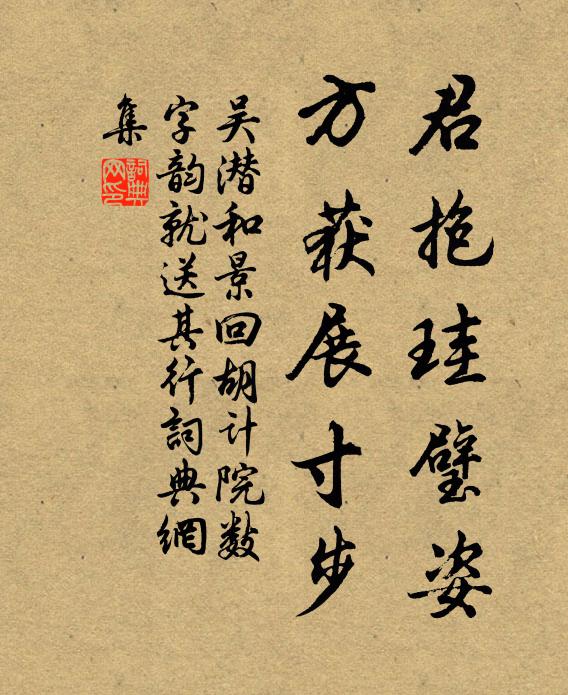 君抱珪璧姿
方获展寸步
吴潜和景回胡计院数
字韵就送其行詞典網
集
詞典
网印